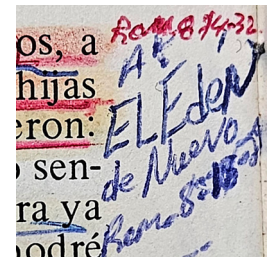 os, a
hijas
eron:
sen-
ra ya
podré
Rom 8 14-32
A
EL Eden
de Nuevo
Rom-8-